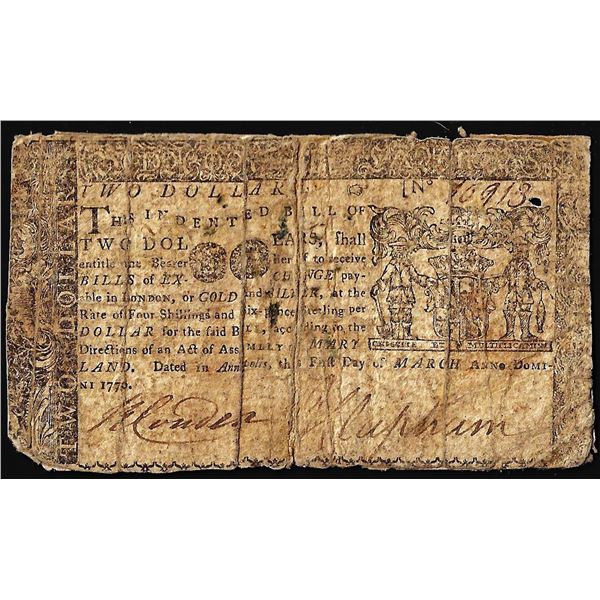 TWO DOLLARS
No 10913
THIS INDENTED BILL OF
TWO DOLLARS, ſhall
entitle the Bearer hereof to receive
BILLS of EXCHANGE pay-
able in LONDON, or GOLD and SILVER, at the
Rate of Four Shillings and Six-pence Sterling per
DOLLAR for the ſaid BILL, according to the
Directions of an Act of ASSEMBLY of MARY
LAND. Dated in Annapolis, this Firſt Day of MARCH ANNO DOMI-
NI 1770.
CRESCITE ET MULTIPLICAMINI
J Clapham
TWO DOLLARS